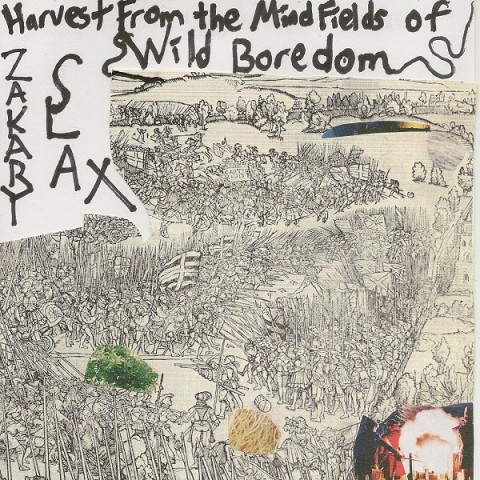 Harvest From the Mind Fields of
Wild Boredom
ZAKARBY
SLAX